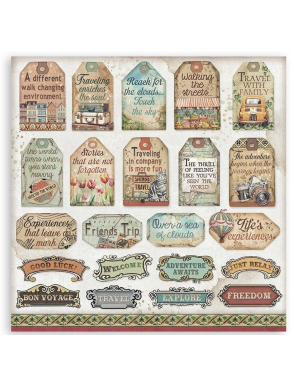 A different
walk changing
environment.
Traveling
enriches
the soul
Reach for
the clouds.
Touch
the sky
Walking
the
streets
TRAVEL
WITH
FAMILY
when you start
moving
Stories
that are not
forgotten
Traveling
in company
is more fun
TRAVEL
THE THRILL
OF FEELING
LIKE YOU'VE
SEEN THE
WORLD
The adventure
Experiences
that leave a
mark
Friends Trip
Over a sea
of clouds
Life's
experiences
GOOD LUCK!
WELCOME
ADVENTURE
AWAITS
JUST RELAX
BON VOYAGE
TRAVEL
EXPLORE
FREEDOM